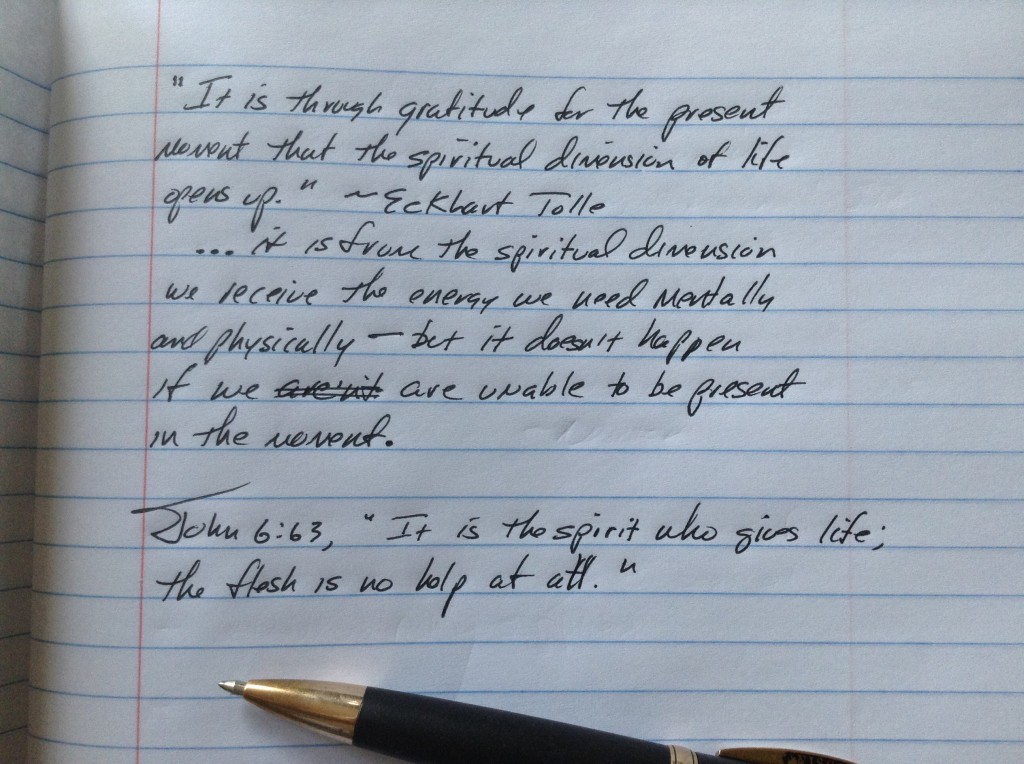 "It is through gratitude for the present
moment that the spiritual dimension of life
opens up." ~Eckhart Tolle
... it is from the spiritual dimension
we receive the energy we need mentally
and physically – but it doesn't happen
if we are'nt are unable to be present
in the moment.
John 6:63, "It is the spirit who gives life;
the flesh is no help at all."